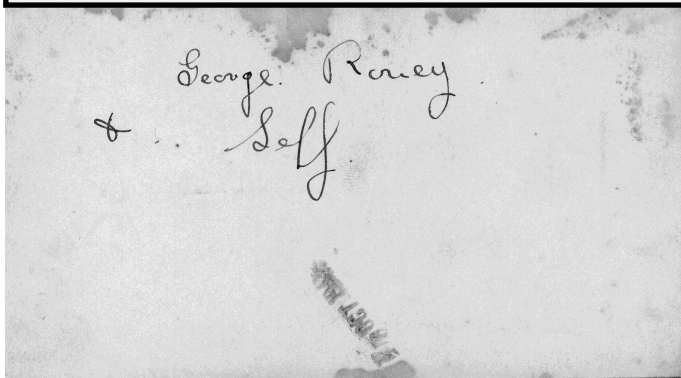 George. Roney.
& . Self.